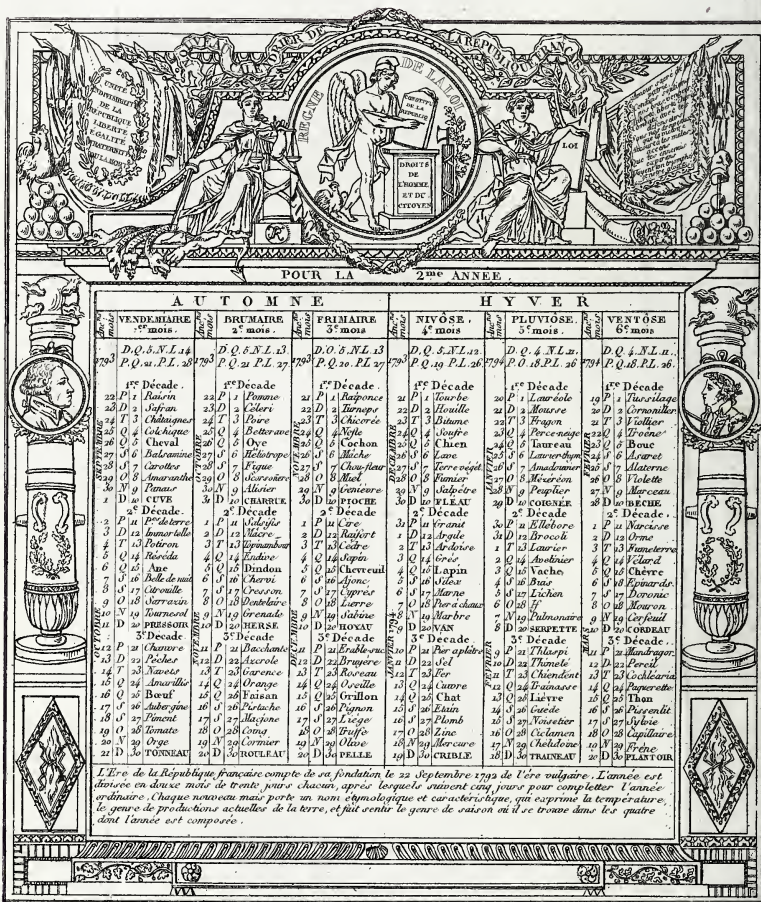 NOUVEAU CALENDRIER DE LA REPUBLIQUE FRANÇAISE
REGNE DE LA LOI
UNITÉ
INDIVISIBILITÉ
DE LA
REPUBLIQUE
LIBERTÉ
EGALITÉ
FRATERNITÉ
OU LA MORT
CONSTITU.
DE LA
REPUBLIQ.
DROITS
DE
L'HOMME
ET DU
CITOYEN
LOI
POUR LA 2me ANNÉE.
AUTOMNE
HYVER
VENDEMIAIRE
1er mois.
1793
D.Q. 5. N.L. 14
P.Q. 21. P.L. 28
SEPTEMBRE
1re Décade.
22 P 1 Raisin
23 D 2 Safran
24 T 3 Châtaignes
25 Q 4 Colchique
26 Q 5 Cheval
27 S 6 Balsamine
28 S 7 Carottes
29 O 8 Amaranthe
30 N 9 Panais
1 D 10 CUVE
OCTOBRE
2e Décade.
2 P 11 P.me de terre
3 D 12 Immortelle
4 T 13 Potiron
5 Q 14 Réséda
6 Q 15 Ane
7 S 16 Belle de nuit
8 S 17 Citrouille
9 O 18 Sarrazin
10 N 19 Tournesol
11 D 20 PRESSOIR
3e Décade
12 P 21 Chanvre
13 D 22 Pêches
14 T 23 Navets
15 Q 24 Amarillis
16 Q 25 Bœuf
17 S 26 Aubergine
18 S 27 Piment
19 O 28 Tomate
20 N 29 Orge
21 D 30 TONNEAU
BRUMAIRE
2e mois.
1793
D.Q. 5. N.L. 13.
P.Q. 21. P.L. 27.
OCTOBRE
1re Décade.
22 P 1 Pomme
23 D 2 Céleri
24 T 3 Poire
25 Q 4 Betterave
26 Q 5 Oye
27 S 6 Héliotrope
28 S 7 Figue
29 O 8 Scorsonère
30 N 9 Alisier
31 D 10 CHARRUE
NOVEMBRE
2e Décade.
1 P 11 Salsifis
2 D 12 Macre
3 T 13 Topinambour
4 Q 14 Endive
5 Q 15 Dindon
6 S 16 Chervi
7 S 17 Cresson
8 O 18 Dentelaire
9 N 19 Grenade
10 D 20 HERSE
3e Décade
11 P 21 Bacchante
12 D 22 Azerole
13 T 23 Garence
14 Q 24 Orange
15 Q 25 Faisan
16 S 26 Pistache
17 S 27 Macjonc
18 O 28 Coing
19 N 29 Cormier
20 D 30 ROULEAU
FRIMAIRE
3e mois
1793
D.Q. 5. N.L. 13
P.Q. 20. P.L. 27
NOVEMBRE
1re Décade.
21 P 1 Raiponce
22 D 2 Turneps
23 T 3 Chicorée
24 Q 4 Nefle
25 Q 5 Cochon
26 S 6 Mâche
27 S 7 Chou-fleur
28 O 8 Miel
29 N 9 Genièvre
30 D 10 PIOCHE
DECEMBRE
2e Décade.
1 P 11 Cire
2 D 12 Raifort
3 T 13 Cèdre
4 Q 14 Sapin
5 Q 15 Chevreuil
6 S 16 Ajonc
7 S 17 Cyprès
8 O 18 Lierre
9 N 19 Sabine
10 D 20 HOYAU
3e Décade
11 P 21 Erable-suc
12 D 22 Bruyere
13 T 23 Roseau
14 Q 24 Oseille
15 Q 25 Grillon
16 S 26 Pignon
17 S 27 Liège
18 O 28 Truffe
19 N 29 Olive
20 D 30 PELLE
NIVÔSE
4e mois
1793
D.Q. 5. N.L. 12.
P.Q. 19. P.L. 26.
DECEMBRE
1re Décade
21 P 1 Tourbe
22 D 2 Houille
23 T 3 Bitume
24 Q 4 Soufre
25 Q 5 Chien
26 S 6 Lave
27 S 7 Terre végét.
28 O 8 Fumier
29 N 9 Salpêtre
30 D 10 FLEAU
JANVIER 1794
2e Décade
31 P 11 Granit
1 D 12 Argile
2 T 13 Ardoise
3 Q 14 Grès
4 Q 15 Lapin
5 S 16 Silex
6 S 17 Marne
7 O 18 Pier à chaux
8 N 19 Marbre
9 D 20 VAN
3e Décade.
10 P 21 Pier a plâtre
11 D 22 Sel
12 T 23 Fer
13 Q 24 Cuivre
14 Q 25 Chat
15 S 26 Etain
16 S 27 Plomb
17 O 28 Zinc
18 N 29 Mercure
19 D 30 CRIBLE
PLUVIÔSE
5e mois.
1794
D.Q. 4. N.L. 11.
P.Q. 18. P.L. 26.
JANVIER
1re Décade
20 P 1 Lauréole
21 D 2 Mousse
22 T 3 Fragon
23 Q 4 Perce-neige
24 Q 5 Taureau
25 S 6 Laurier-thym
26 S 7 Amadouvier
27 O 8 Mézéréon
28 N 9 Peuplier
29 D 10 COIGNÉE
FEVRIER
2e Décade
30 P 11 Ellébore
31 D 12 Brocoli
1 T 13 Laurier
2 Q 14 Avelinier
3 Q 15 Vache
4 S 16 Buis
5 S 17 Lichen
6 O 18 If
7 N 19 Pulmonaire
8 D 20 SERPETTE
3e Décade
9 P 21 Thlaspi
10 D 22 Thimelé
11 T 23 Chiendent
12 Q 24 Trainasse
13 Q 25 Lièvre
14 S 26 Guède
15 S 27 Noisetier
16 O 28 Ciclamen
17 N 29 Chelidoine
18 D 30 TRAINEAU
VENTÔSE
6e mois
1794
D.Q. 4. N.L. 11.
P.Q. 18. P.L. 26.
FEVRIER
1re Décade.
19 P 1 Tussilage
20 D 2 Cornouiller
21 T 3 Viollier
22 Q 4 Troëne
23 Q 5 Bouc
24 S 6 Asaret
25 S 7 Alaterne
26 O 8 Violette
27 N 9 Marceau
28 D 10 BÊCHE
MARS
2e Décade.
1 P 11 Narcisse
2 D 12 Orme
3 T 13 Fumeterre
4 Q 14 Vélard
5 Q 15 Chèvre
6 S 16 Epinards
7 S 17 Doronic
8 O 18 Mouron
9 N 19 Cerfeuil
10 D 20 CORDEAU
3e Décade
11 P 21 Mandragor.
12 D 22 Percil
13 T 23 Cochléaria
14 Q 24 Paquerette
15 Q 25 Thon
16 S 26 Pissenlit
17 S 27 Sylvie
18 O 28 Capillaire
19 N 29 Frêne
20 D 30 PLANTOIR
L'Ere de la République française compte de sa fondation le 22 Septembre 1792 de l'ére vulgaire. L'année est
divisée en douze mois de trente jours chacun, après lesquels suivent cinq jours pour completter l'année
ordinaire. Chaque nouveau mois porte un nom étymologique et caractéristique, qui exprime la température,
le genre de productions actuelles de la terre, et fait sentir le genre de saison où il se trouve dans les quatre
dont l'année est composée.